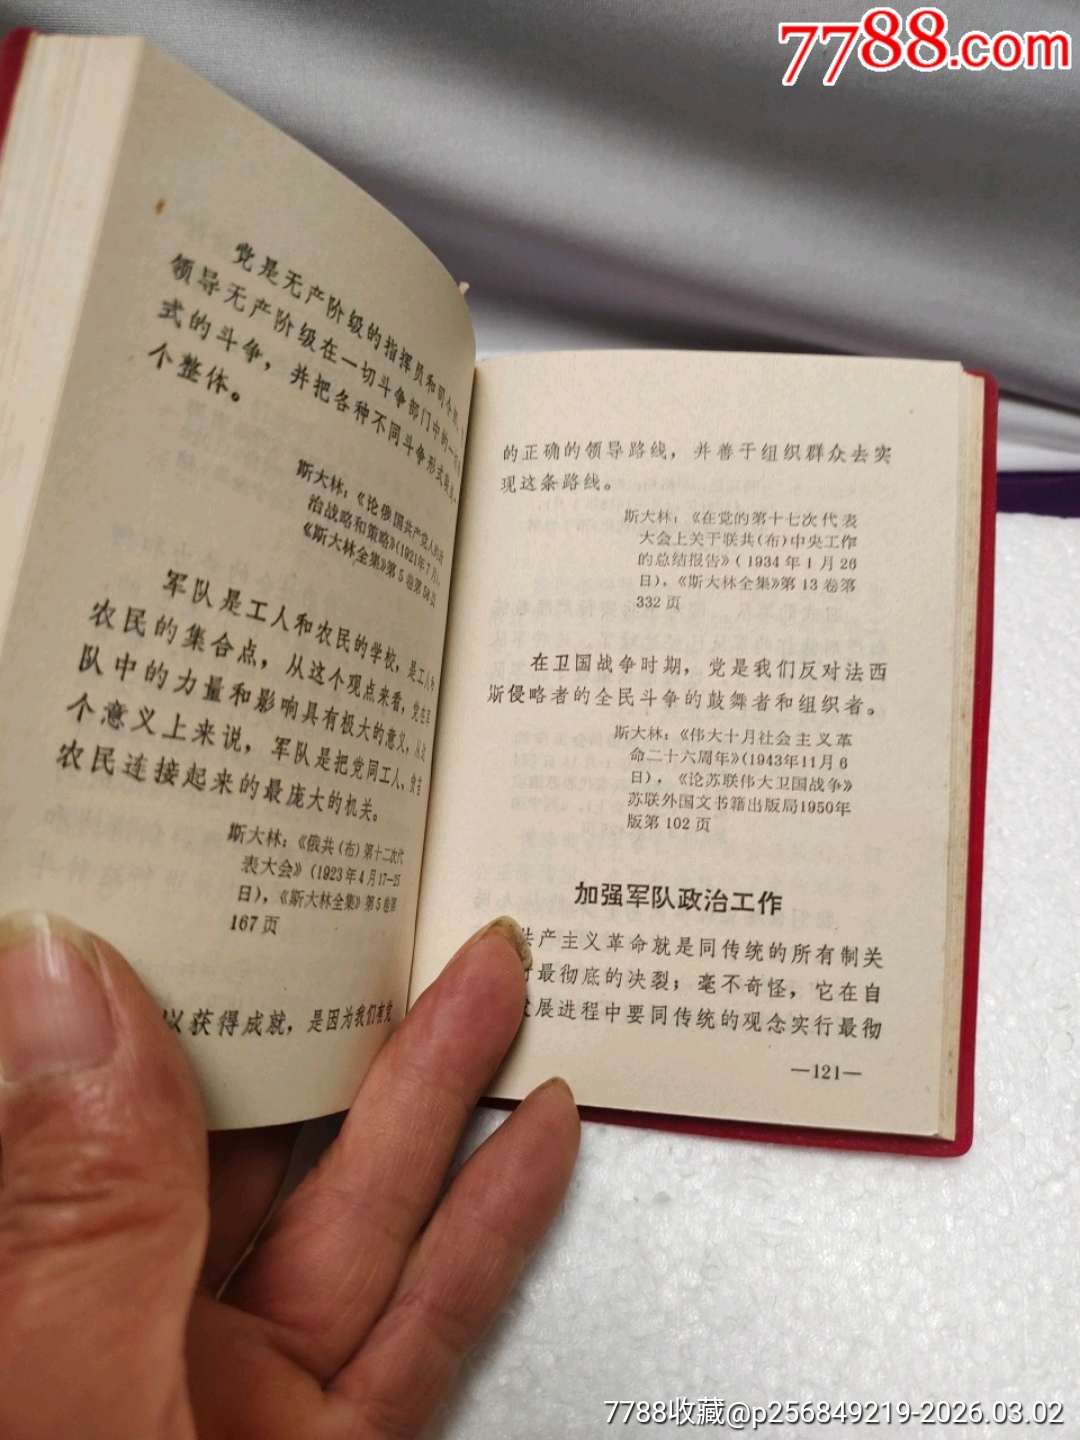 7788.com
党是无产阶级的指挥员和司令部,
领导无产阶级在一切斗争部门中的一切形
式的斗争，并把各种不同斗争形式
个整体。
斯大林：《论俄国共产党人的政
治战略和策略》(1921年7月)，
《斯大林全集》第5卷第58页
军队是工人和农民的学校，是工人和
农民的集合点，从这个观点来看，党在军
队中的力量和影响具有极大的意义，从这
个意义上来说，军队是把党同工人、贫苦
农民连接起来的最庞大的机关。
斯大林：《俄共(布)第十二次代
表大会》(1923年4月17—25
日)，《斯大林全集》第5卷第
167页
以获得成就，是因为我们有党
的正确的领导路线，并善于组织群众去实
现这条路线。
斯大林：《在党的第十七次代表
大会上关于联共(布)中央工作
的总结报告》(1934年1月26
日)，《斯大林全集》第13卷第
332页
在卫国战争时期，党是我们反对法西
斯侵略者的全民斗争的鼓舞者和组织者。
斯大林：《伟大十月社会主义革
命二十六周年》(1943年11月6
日)，《论苏联伟大卫国战争》
苏联外国文书籍出版局1950年
版第102页
加强军队政治工作
共产主义革命就是同传统的所有制关
最彻底的决裂；毫不奇怪，它在自
发展进程中要同传统的观念实行最彻
—121—
7788收藏@p256849219-2026.03.02